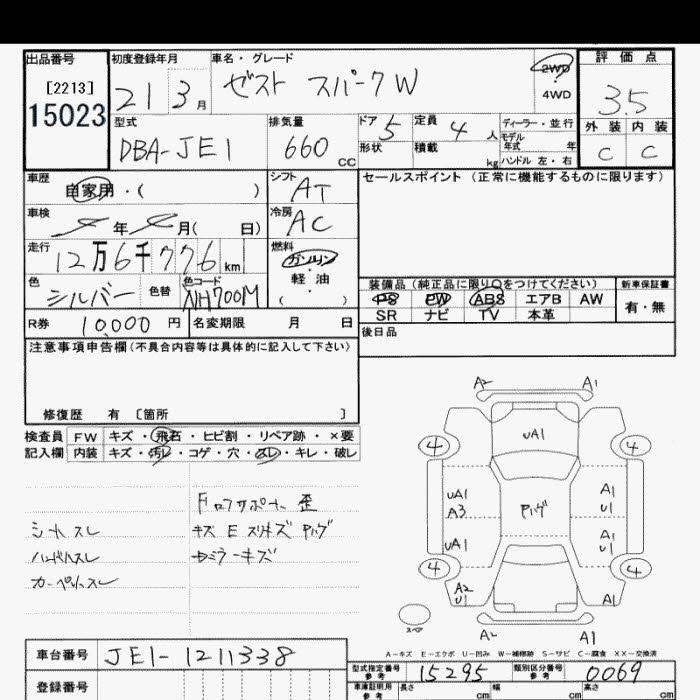 出品番号 初度登録年月 車名・グレード 評価点
[2213] 21 3月 ゼスト スパークW 2WD 3.5
15023 4WD
型式 排気量 ドア 定員 ディーラー・並行 外装 内装
DBA-JE1 660CC 5 4人 モデル年式 年 C C
形状 積載 kg ハンドル 左・右
車歴 シフト セールスポイント (正常に機能するものに限ります)
自家用・( ) AT
車検 冷房
年 月( 日) AC
走行 燃料
12万6千776km ガソリン
・
色 色替 色コード 軽油 装備品 (純正品に限り○をつけてください) 新車保証書
シルバー NH700M ( ) PS PW ABS エアB AW 有・無
SR ナビ TV 本革
R券 10,000円 名変期限 月 日 後日品
注意事項申告欄(不具合内容等は具体的に記入して下さい)
修復歴 有 [箇所 ]
検査員 FW キズ・飛石・ヒビ割・リペア跡・×要
記入欄 内装 キズ・汚レ・コゲ・穴・スレ・キレ・破レ
A2 A1
UA1
4 4
UA1 A1
A3 Pハゲ U1
UA1 A1
U1
4 4
A2 A1
U1
A2 A1
スペア
Fロアサポート 歪
シートスレ キズ E スリキズ Pハゲ
ハンドルスレ ミラーキズ
カーペットスレ
A-キズ E-エクボ U-凹み W-補修跡 S-サビ C-腐食 XX-交換済
車台番号 JE1-1211338 型式指定番号 参考 15295 類別区分番号 参考 0069
登録番号 車庫証明用 参考 長さ cm 幅 cm 高さ cm